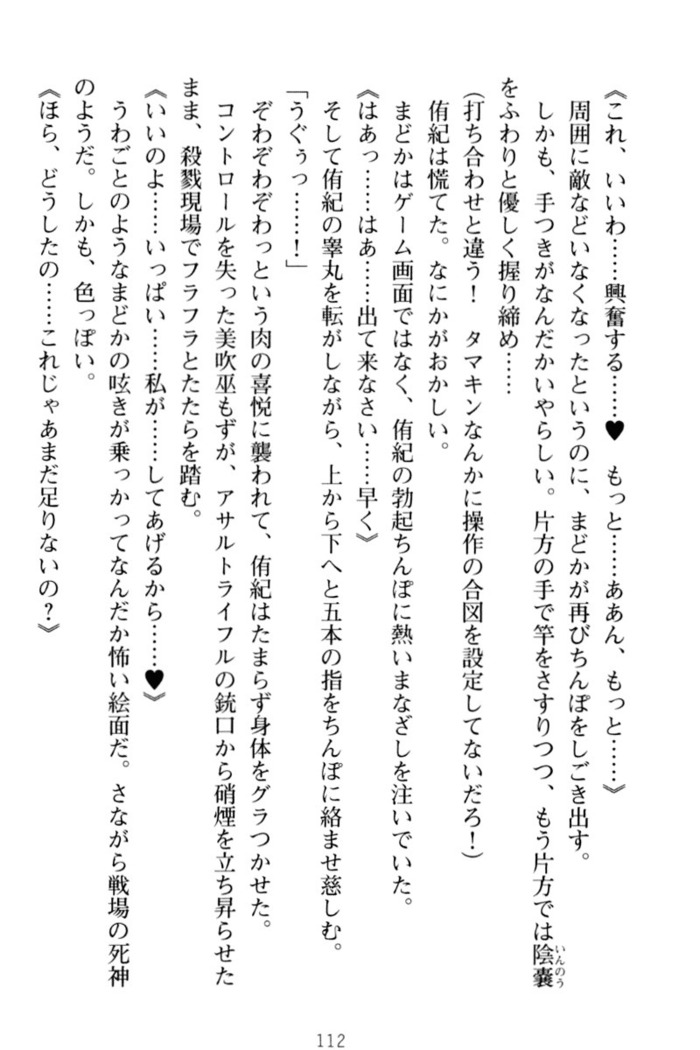 《これ、いいわ……興奮する……♥　もっと……ああん、もっと……》
周囲に敵などいなくなったというのに、まどかが再びちんぽをしごき出す。
しかも、手つきがなんだかいやらしい。片方の手で竿をさすりつつ、もう片方では陰嚢
いんのう
をふわりと優しく握り締め……
(打ち合わせと違う！　タマキンなんかに操作の合図を設定してないだろ！)
侑紀は慌てた。なにかがおかしい。
まどかはゲーム画面ではなく、侑紀の勃起ちんぽに熱いまなざしを注いでいた。
《はあっ……はあ……出て来なさい……早く》
そして侑紀の睾丸を転がしながら、上から下へと五本の指をちんぽに絡ませ慈しむ。
「うぐぅっ……！」
ぞわぞわぞわっという肉の喜悦に襲われて、侑紀はたまらず身体をグラつかせた。
コントロールを失った美吹巫もずが、アサルトライフルの銃口から硝煙を立ち昇らせた
まま、殺戮現場でフラフラとたたらを踏む。
《いいのよ……いっぱい……私が……してあげるから……♥》
うわごとのようなまどかの呟きが乗っかってなんだか怖い絵面だ。さながら戦場の死神
のようだ。しかも、色っぽい。
《ほら、どうしたの……これじゃあまだ足りないの？》
112